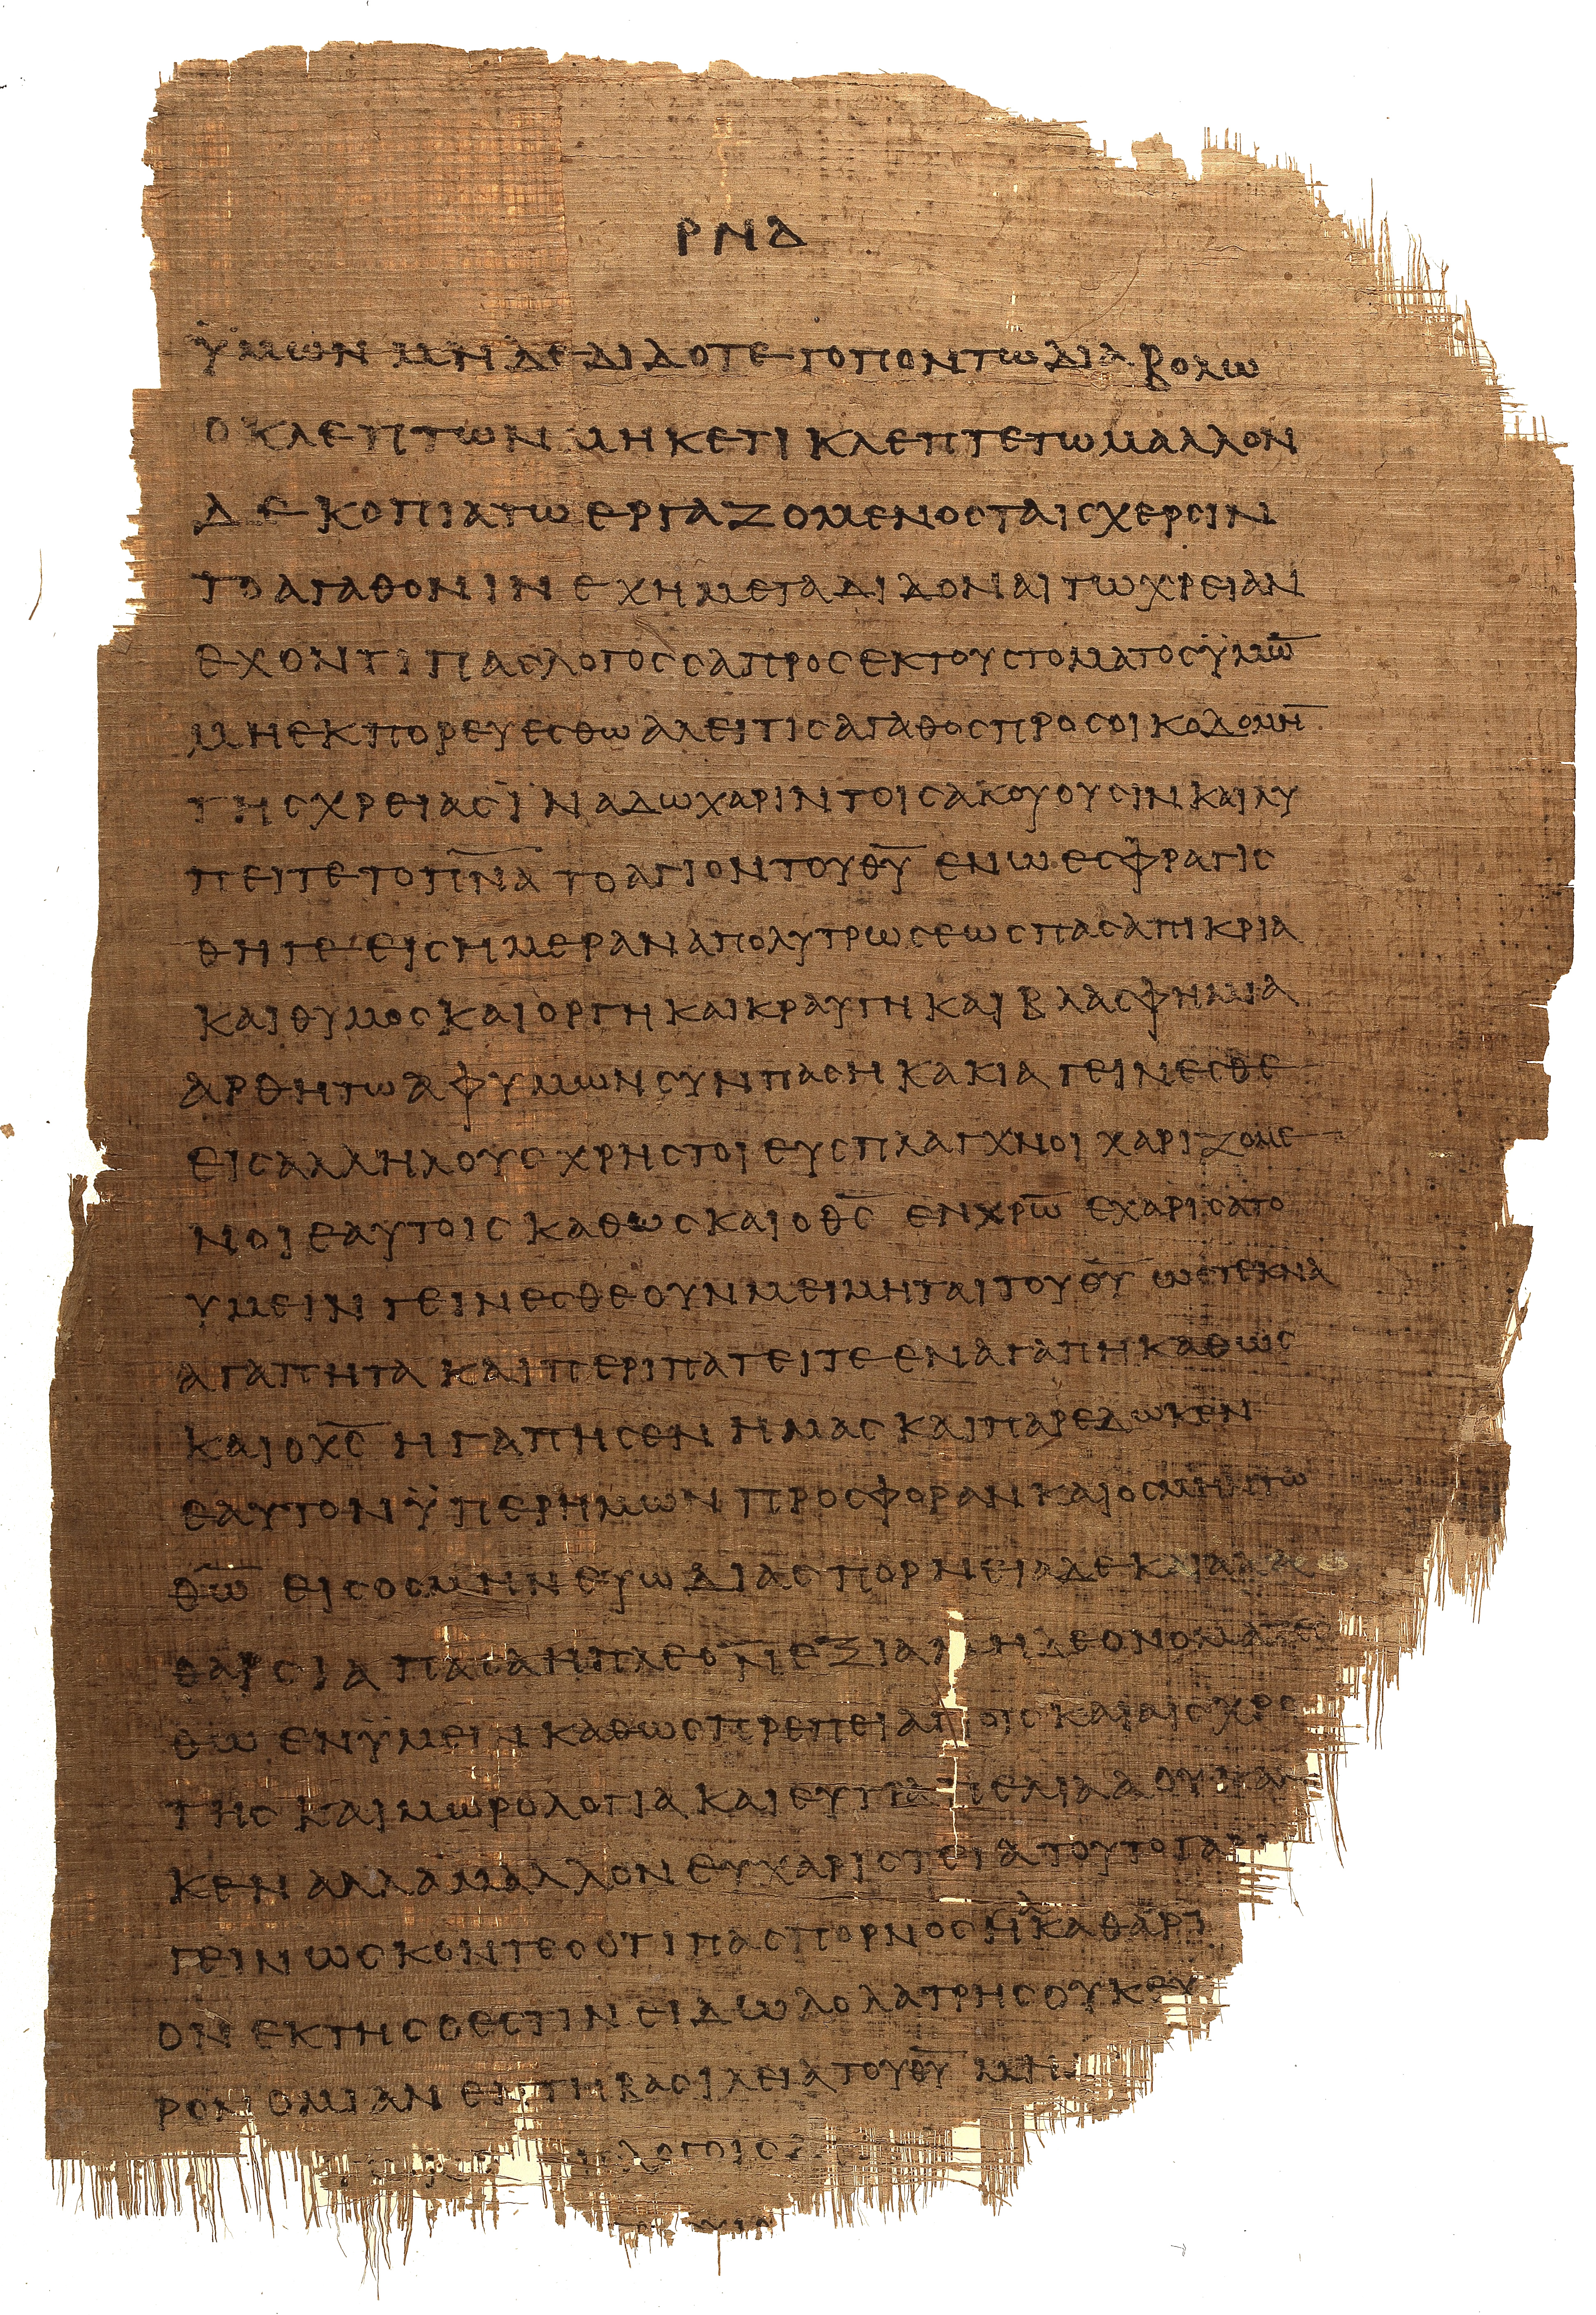 ΡΝΔ
ϋμων μηδε διδοτε τοπον τω διαβολω
ο κλεπτων μηκετι κλεπτετω μαλλον
δε κοπιατω εργαζομενος ταις χερσιν
το αγαθον ιν εχη μεταδιδοναι τω χρειαν
εχοντι πας λογος σαπρος εκ του στοματος ϋμω̅
μη εκπορευεσθω αλ ει τις αγαθος προς οικοδομη̅
της χρειας ϊνα δω χαριν τοις ακουουσιν και λυ
πειτε το π̅ν̅α̅ το αγιον του θ̅υ̅ εν ω εσφραγισ
θητε εις ημεραν απολυτρωσεως πασα πικρια
και θυμος και οργη και κραυγη και βλασφημια
αρθητω αφ υμων συν παση κακια γεινεσθε
εις αλληλους χρηστοι ευσπλαγχνοι χαριζομε
νοι εαυτοις καθως και ο θ̅ς̅ εν χ̅ρ̅ω̅ εχαρισατο
υμειν γεινεσθε ουν μειμηται του θ̅υ̅ ως τεκνα
αγαπητα και περιπατειτε εν αγαπη καθως
και ο χ̅ς̅ ηγαπησεν ημας και παρεδωκεν
εαυτον ϋπερ ημων προσφοραν και οσμην τω
θ̅ω̅ εις οσμην ευωδιας πορνεια δε και
θαρσια πασα η πλεονεξια μηδε ονομαζεσ
θω εν ϋμειν καθως πρεπει αγιοις και αισχρο
της και μωρολογια και ευτραπελια α ουκ αν
κεν αλλα μαλλον ευχαριστεια τουτο γαρ
γεινωσκοντες οτι πας πορνος η ακαθαρτ
ον εκτης ο εστιν ειδωλολατρης ουκ
ρονομιαν εν τη βασιλεια του θ̅υ̅ μη
λογοις